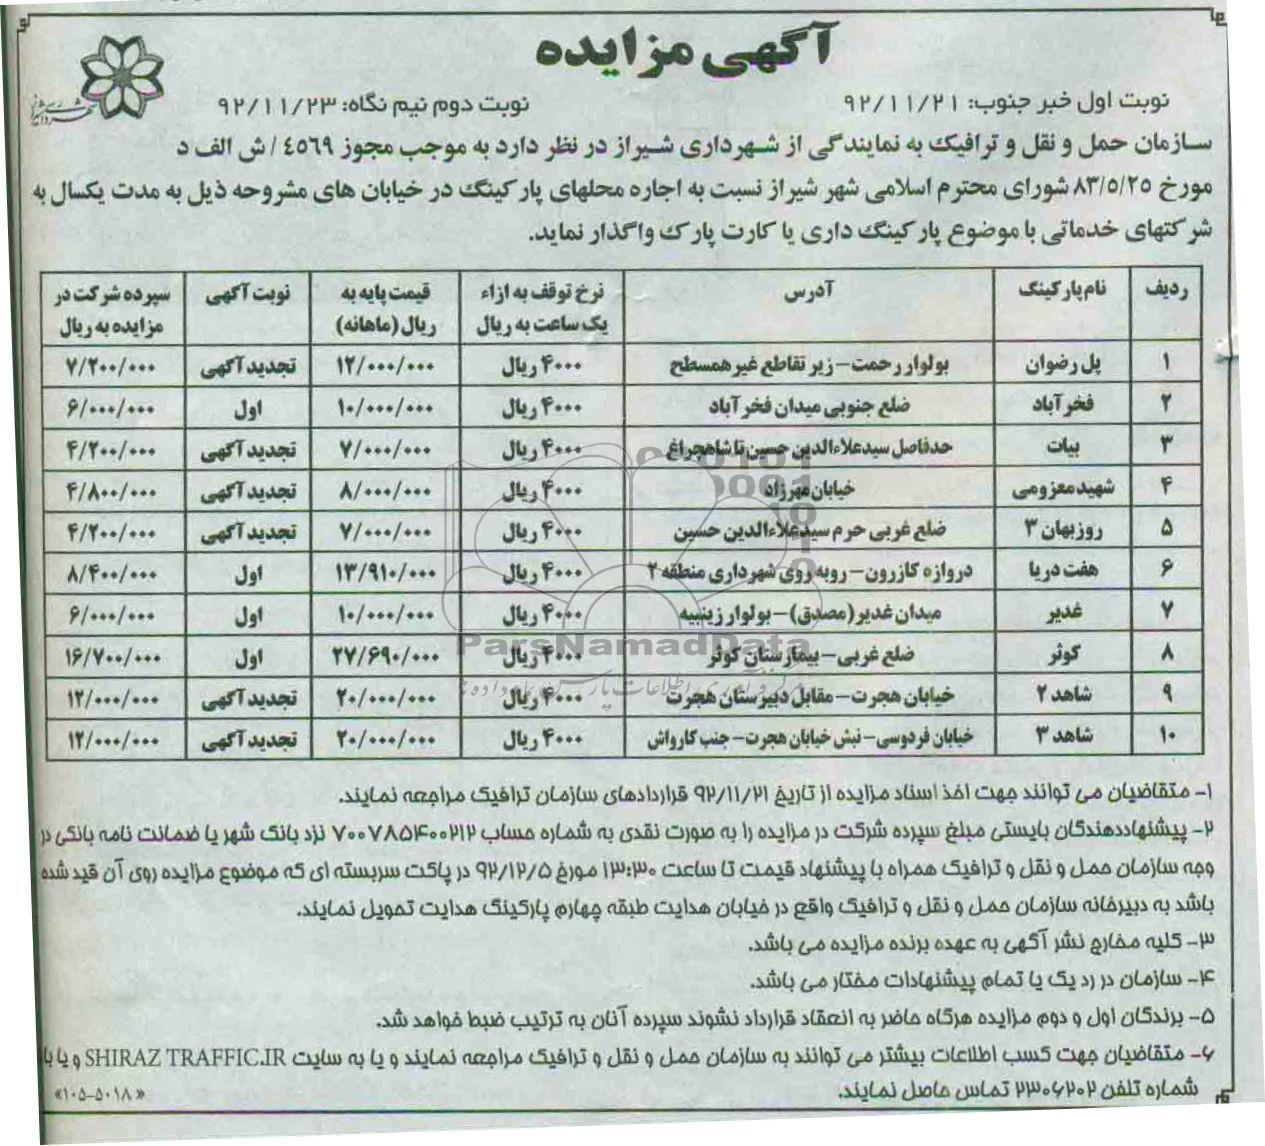 آگهی مزایده
نوبت اول خبر جنوب: ۹۲/۱۱/۲۱
نوبت دوم نیم نگاه: ۹۲/۱۱/۲۳
سازمان حمل و نقل و ترافیک به نمایندگی از شهرداری شیراز در نظر دارد به موجب مجوز ٤٥٦٩ / ش الف د
مورخ ۸۳/۵/۲۵ شورای محترم اسلامی شهر شیراز نسبت به اجاره محلهای پارکینگ در خیابان های مشروحه ذیل به مدت یکسال به
شرکتهای خدماتی با موضوع پارکینگ داری یا کارت پارک واگذار نماید.
ردیف نام پارکینگ آدرس نرخ توقف به ازاء یک ساعت به ریال قیمت پایه به ریال (ماهانه) نوبت آگهی سپرده شرکت در مزایده به ریال
۱ پل رضوان بولوار رحمت- زیر تقاطع غیر همسطح ۴۰۰۰ ریال ۱۲/۰۰۰/۰۰۰ تجدید آگهی ۷/۲۰۰/۰۰۰
۲ فخرآباد ضلع جنوبی میدان فخرآباد ۴۰۰۰ ریال ۱۰/۰۰۰/۰۰۰ اول ۶/۰۰۰/۰۰۰
۳ بیات حدفاصل سیدعلاءالدین حسین تا شاهچراغ ۴۰۰۰ ریال ۷/۰۰۰/۰۰۰ تجدید آگهی ۴/۲۰۰/۰۰۰
۴ شهید معزومی خیابان مهرزاد ۴۰۰۰ ریال ۸/۰۰۰/۰۰۰ تجدید آگهی ۴/۸۰۰/۰۰۰
۵ روزبهان ۳ ضلع غربی حرم سیدعلاءالدین حسین ۴۰۰۰ ریال ۷/۰۰۰/۰۰۰ تجدید آگهی ۴/۲۰۰/۰۰۰
۶ هفت دریا دروازه کازرون- روبه روی شهرداری منطقه ۲ ۴۰۰۰ ریال ۱۳/۹۱۰/۰۰۰ اول ۸/۴۰۰/۰۰۰
۷ غدیر میدان غدیر (مصدق)- بولوار زینبیه ۴۰۰۰ ریال ۱۰/۰۰۰/۰۰۰ اول ۶/۰۰۰/۰۰۰
۸ کوثر ضلع غربی- بیمارستان کوثر ۴۰۰۰ ریال ۲۷/۶۹۰/۰۰۰ اول ۱۶/۷۰۰/۰۰۰
۹ شاهد ۲ خیابان هجرت- مقابل دبیرستان هجرت ۴۰۰۰ ریال ۲۰/۰۰۰/۰۰۰ تجدید آگهی ۱۲/۰۰۰/۰۰۰
۱۰ شاهد ۳ خیابان فردوسی- نبش خیابان هجرت- جنب کارواش ۴۰۰۰ ریال ۲۰/۰۰۰/۰۰۰ تجدید آگهی ۱۲/۰۰۰/۰۰۰
ParsNamadData
۱- متقاضیان می توانند جهت اخذ اسناد مزایده از تاریخ ۹۲/۱۱/۲۱ قراردادهای سازمان ترافیک مراجعه نمایند.
۲- پیشنهاددهندگان بایستی مبلغ سپرده شرکت در مزایده را به صورت نقدی به شماره حساب ۷۰۰۷۸۵۴۰۰۲۱۲ نزد بانک شهر یا ضمانت نامه بانکی در
وجه سازمان حمل و نقل و ترافیک همراه با پیشنهاد قیمت تا ساعت ۱۳:۳۰ مورخ ۹۲/۱۲/۵ در پاکت سربسته ای که موضوع مزایده روی آن قید شده
باشد به دبیرخانه سازمان حمل و نقل و ترافیک واقع در خیابان هدایت طبقه چهارم پارکینگ هدایت تحویل نمایند.
۳- کلیه مخارج نشر آگهی به عهده برنده مزایده می باشد.
۴- سازمان در رد یک یا تمام پیشنهادات مختار می باشد.
۵- برندگان اول و دوم مزایده هرگاه حاضر به انعقاد قرارداد نشوند سپرده آنان به ترتیب ضبط خواهد شد.
۶- متقاضیان جهت کسب اطلاعات بیشتر می توانند به سازمان حمل و نقل و ترافیک مراجعه نمایند و یا به سایت SHIRAZ TRAFFIC.IR و یا با
شماره تلفن ۲۳۰۶۲۰۲ تماس حاصل نمایند.
«۱۰۵-۵۰۱۸»